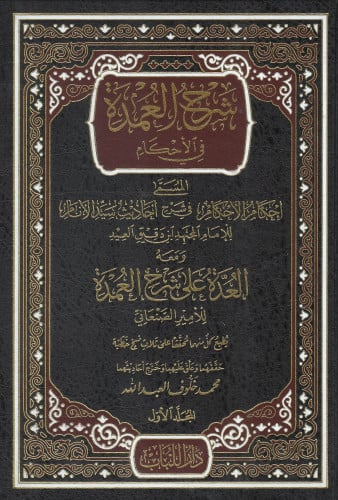 شرح العمدة
في الأحكام
المسمى
إحكام الأحكام في شرح أحاديث سيد الأنام
للإمام المجتهد ابن دقيق العيد
ومعه
العدة على شرح العمدة
للأمير الصنعاني
يطبع كل منهما محققا على ثلاث نسخ خطية
حققهما وعلق عليهما وخرج أحاديثهما
محمد خلوف العبد الله
المجلد الأول
دار اللباب